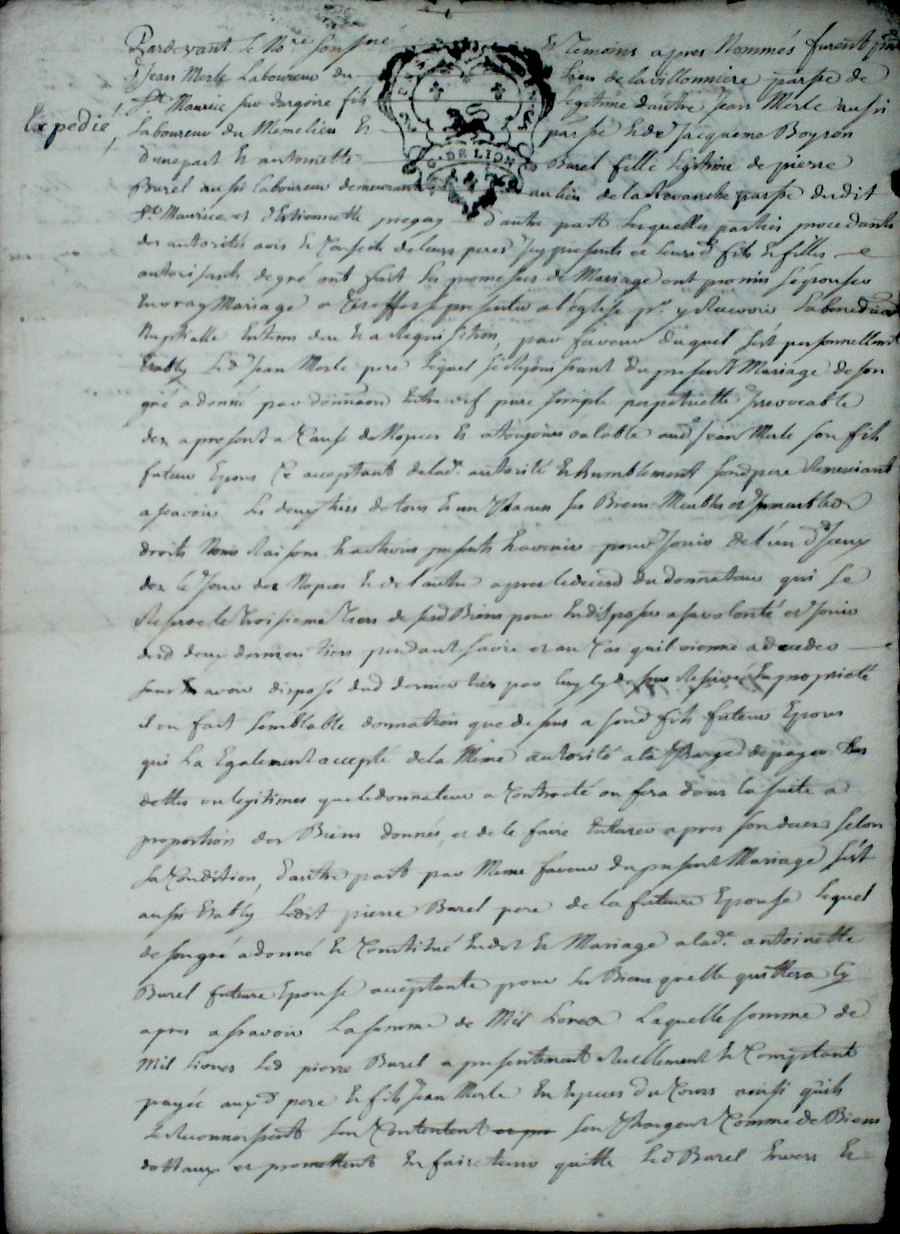 Pardevant le No.re soussné Et Temoins apres Nommés furent pnt
Sr Jean Merle Laboureur du Lieu de la villonniere parsse de
St Maurice sur dargoire fils legitime dautre Jean Merle aussi
Expedié,
Laboureur du Memelieu Et parsse Et de Jacqueme Boyron
d'une part Et antoinette Burel fille Legitime de pierre
G. DE LION
Burel aussi laboureur demeurant au lieu de la Revanche parsse dudit
St Maurice et d'Estiennette d'autre part Lesquelles parties procedants
des autorités avis Et Conseils de leurs peres Icy presents et leursd fils Et filles
autorisants de gré ont fait les promesses de Mariage ont promis s'epouser
En vray Mariage a Cet effet se presenter a l'eglise pr y Recevoir La benediction
Nuptialle Entems du Et a Requisition, par faveur duquel s'est personnellement
Etably Led Jean Merle pere Lequel se Rejouissant du present Mariage de son
gré a donné par donnaon Entre vif pure simple perpetuelle Irrevocable
dez a present a Cause de Nopces Et a toujours valable aud Jean Merle son fils
futeur Epoux Ce acceptant de lad. autorité Et humblement sondpere Remerciant
assavoir Les deux tiers de tous Et un Chacun ses Biens Meubles et Immeubles
droits Noms Raisons Et actions presents Et avenir pour Jouir de l'un d'Iceux
dez le Jour des Nopces Et de l'autre apres le deced du donnateur qui se
Reserve le Troisieme Tiers de sesd Biens pour En disposer a sa volonté et Jouir
desd deux derniers tiers pendant sa vie et au Cas quil vienne a deceder
sans En avoir disposé dud dernier tiers par luy Reservé En proprieté
il en fait semblable donnation que dessus a sond fils futeur Epoux
qui L'a Egalement accepté de la Meme autorité a la Charge de payer les
dettes ou legitimes que le donnateur a Contracté ou fera dans la suite a
proportion des Biens donnés, et de le faire Enterrer apres son deced selon
sa Condition, d'autre part par Meme faveur du present Mariage s'est
aussi Etably Ledit pierre Burel pere de la future Epouse Lequel
de son gré a donné Et Constitué En dot Et Mariage a lad. antoinette
Burel future Epouse acceptante pour les Biens quelle quittera Cy
apres assavoir La somme de Mil livres Laquelle somme de
Mil livres Led pierre Burel a presentement Reellement Et Comptant
payée auxd pere Et fils Jean Merle En Especes du Cours ainsi quils
Le Reconnoissent s'en Contentent s'en Chargent Comme de Biens
dottaux et promettent En faire tenir quitte Led Burel Envers Et